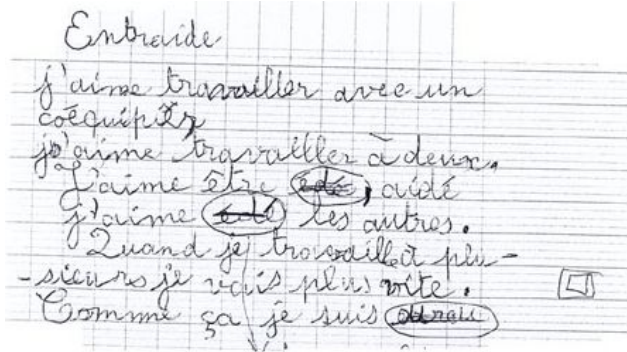 Entraide
j'aime travailler avec un
coéquipier
j'aime travailler à deux.
J'aime être édé, aidé
j'aime édé les autres.
Quand je travaille à plu-
-sieurs je vais plus vite.
Comme ça je suis